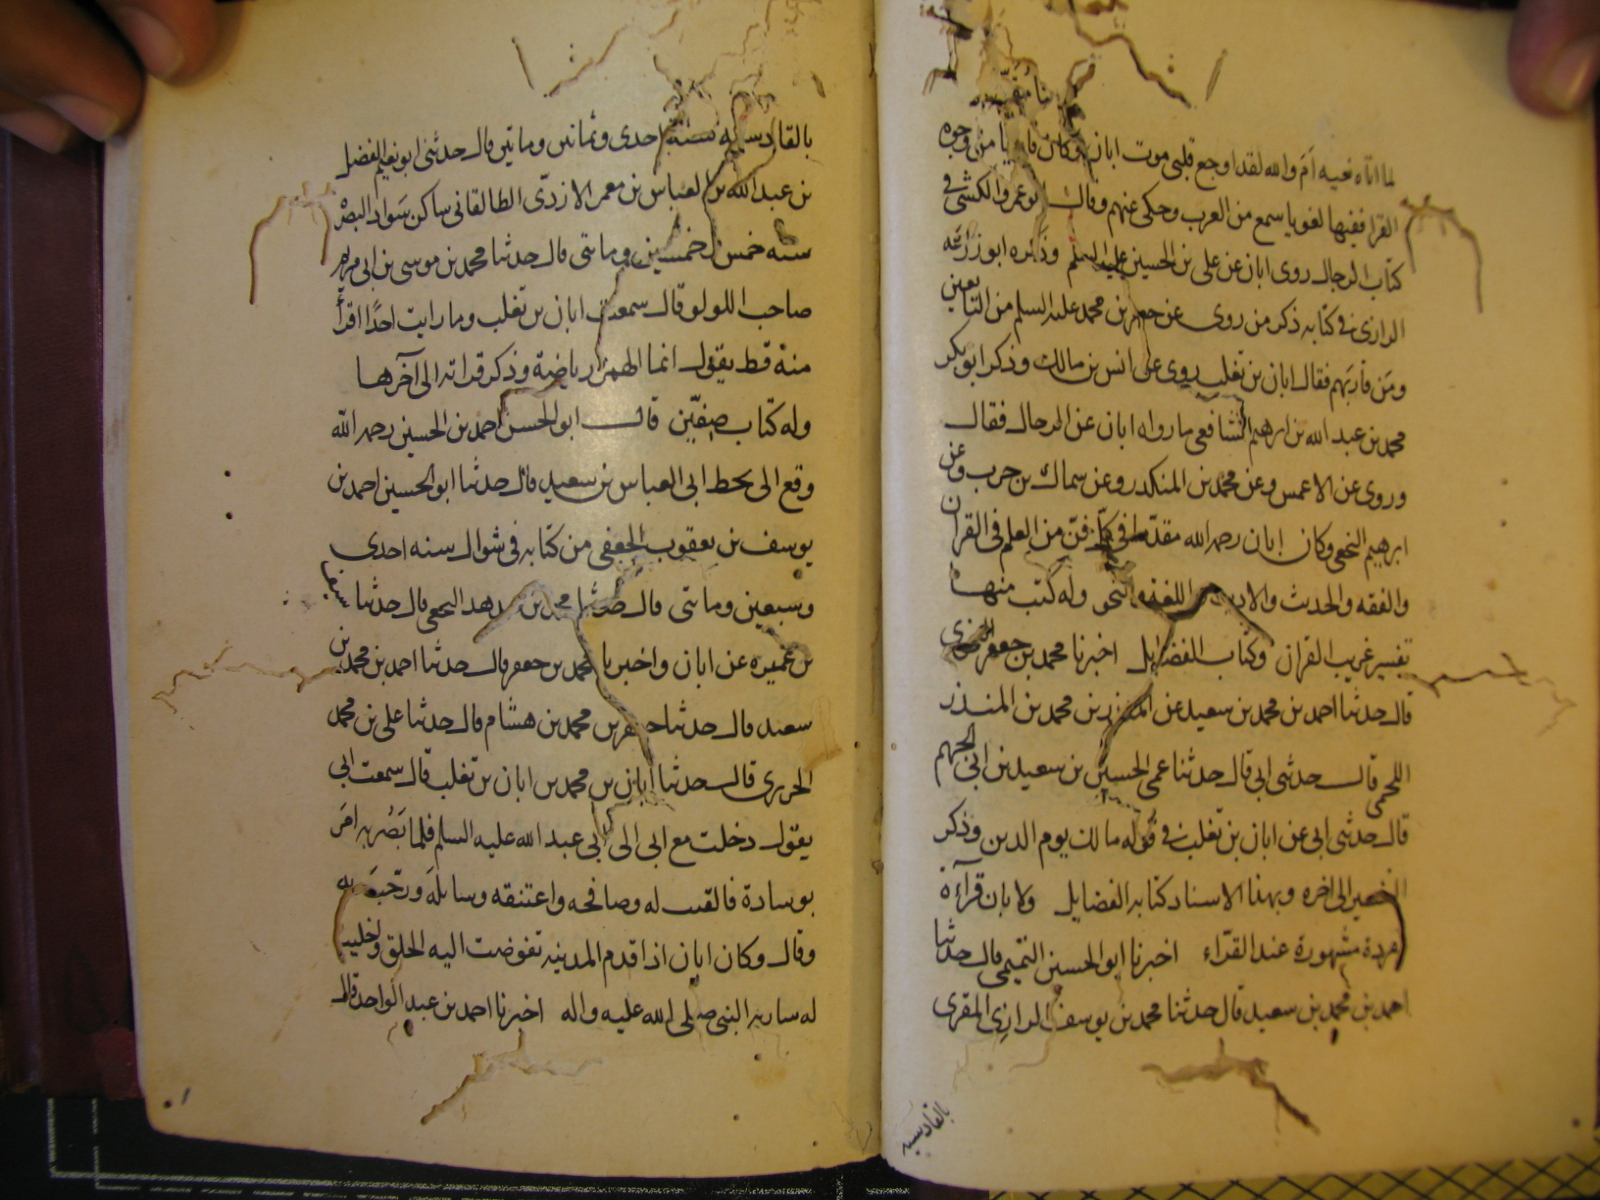 لما اتاه نعيه اَمَ والله لقد اوجع قلبى موت ابان وكان قاريا من وجوه
القرا فقيها لغويا سمع من العرب وحكى عنهم وقال ابو عمرو الكشى فى
كتاب الرجال روى ابان عن على بن الحسين عليه السلم وذكره ابو زرعة
الرازى فى كتابه ذكر من روى عن جعفر بن محمد عليه السلم من التابعين
ومن قاربهم فقال ابان بن تغلب روى عن انس بن مالك وذكر ابو بكر
محمد بن عبد الله بن ابرهيم الشافعى ما رواه ابان عن الرجال فقال
وروى عن الاعمش وعن محمد بن المنكدر وعن سماك بن حرب وعن
ابرهيم النخعى وكان ابان رحمه الله مقدما فى كل فن من العلم فى القران
والفقه والحديث والادب واللغه والنحو وله كتب منها
تفسير غريب القران وكتاب الفضايل اخبرنا محمد بن جعفر
قال حدثنا احمد بن محمد بن سعيد عن المنذر بن محمد بن المنذر
اللخمى قال حدثنى ابى قال حدثنا عمى الحسين بن سعيد بن ابى الجهم
قال حدثنى ابى عن ابان بن تغلب فى قوله مالك يوم الدين وذكر
التفسير الى اخره وبهذا الاسناد كتابه الفضايل ولابان قرآءة
مفردة مشهورة عند القرّاء اخبرنا ابو الحسين التميمى قال حدثنا
احمد بن محمد بن سعيد قال حدثنا محمد بن يوسف الرازى المقرى
بالقادسيه
بالقادسيه سنة احدى وثمانين وماتين قال حدثنى ابو نعيم الفضل
بن عبد الله بن العباس بن معمر الازدى الطالقانى ساكن سَواد البصره
سنه خمس وخمسين وماتتى قال حدثنا محمد بن موسى بن ابى مريم
صاحب اللولو قال سمعت ابان بن تغلب وما رايت احدًا اقرأ
منه قط يقول انما الهمز رياضة وذكر قراته الى آخرها
وله كتاب صفّين قال ابو الحسن احمد بن الحسين رحمه الله
وقع الى بخط ابى العباس بن سعيد قال حدثنا ابو الحسين احمد بن
يوسف بن يعقوب الجعفى من كتابه فى شوال سنه احدى
وسبعين وماتتى قال حدثنا محمد بن النخعى قال حدثنا سيف
بن عميره عن ابان واخبرنا محمد بن جعفر قال حدثنا احمد بن محمد بن
سعيد قال حدثنا جعفر بن محمد بن هشام قال حدثنا على بن محمد
الحريرى قال حدثنا ابان بن محمد بن ابان بن تغلب قال سمعت ابى
يقول دخلت مع ابى الى ابى عبد الله عليه السلم فلما بَصُر به امَر
بوسادة فالقيت له وصافحه واعتنقه وسايله ورحّب به
وقال وكان ابان اذا قدم المدينه تفوضت اليه الحلق واخليت
له ساريه النبى صلى الله عليه واله اخبرنا احمد بن عبد الواحد قال